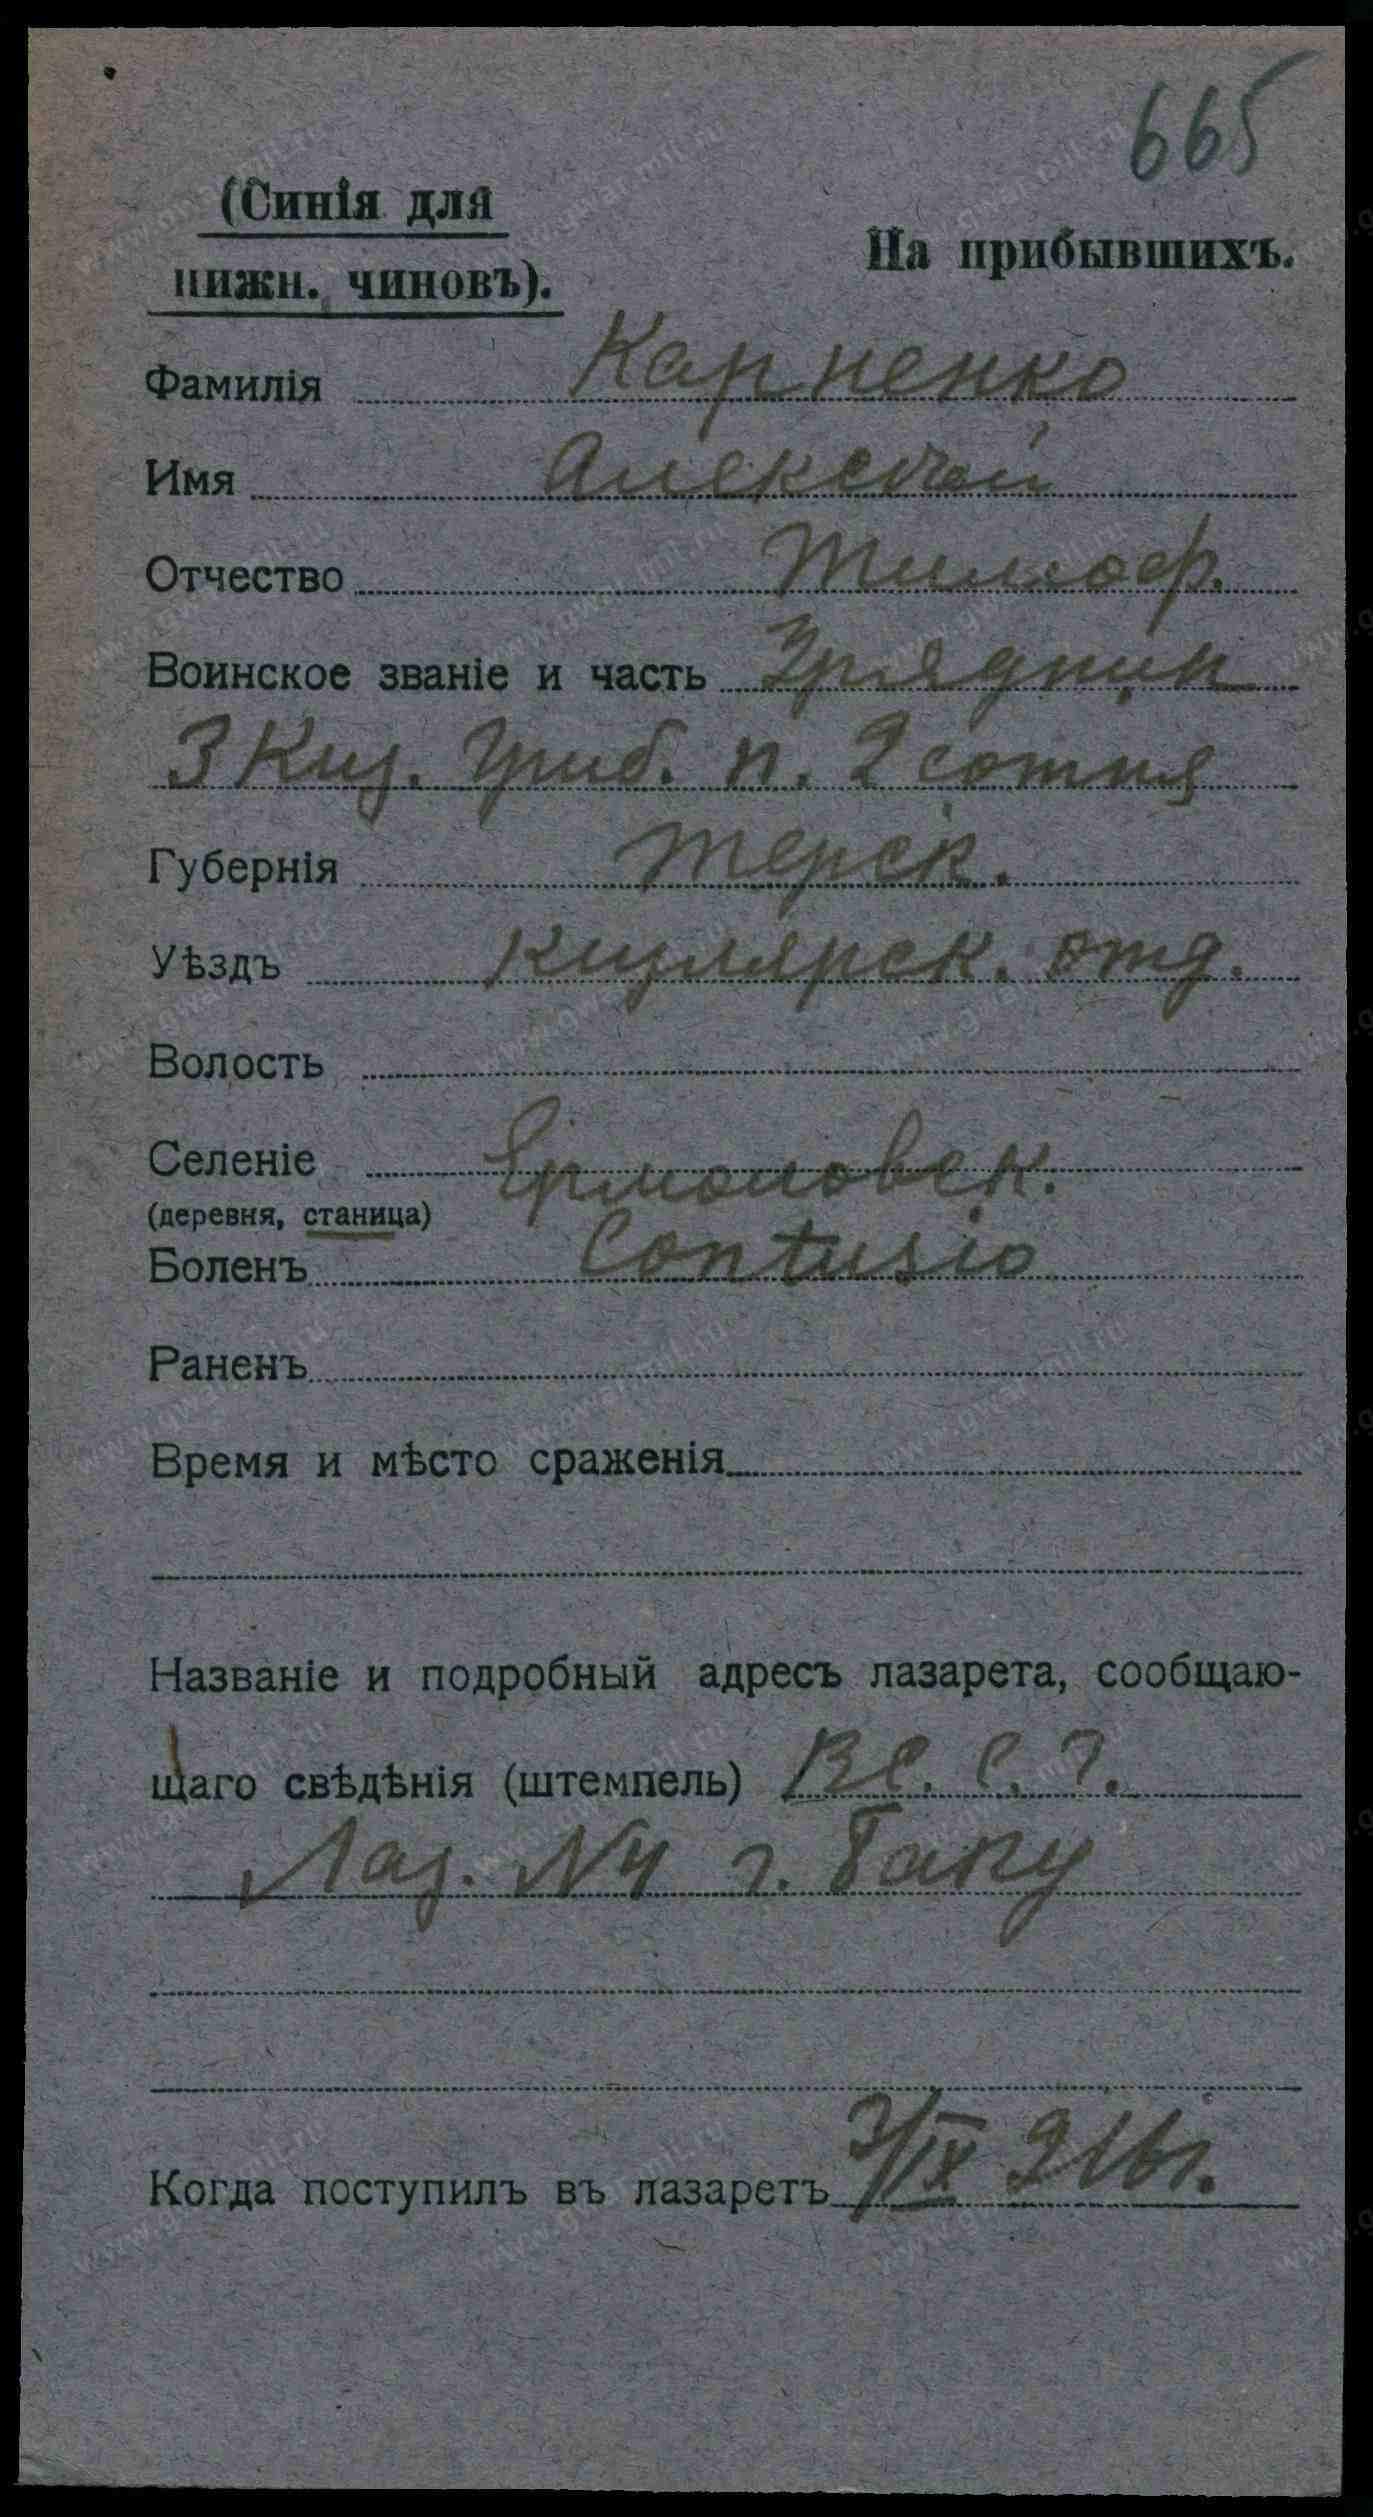 665
(Синія для
нижн. чиновъ).
На прибывшихъ.
Фамилія Карпенко
Имя Алексѣй
Отчество Тимоф.
Воинское званіе и часть Урядник
3 Киз. Греб. п. 2 сотня
Губернія Терск.
Уѣздъ Кизлярск. отд.
Волость
Селеніе Ермоловск.
(деревня, станица)
Боленъ Contusio
Раненъ
Время и мѣсто сраженія
Названіе и подробный адресъ лазарета, сообщаю-
щаго свѣдѣнія (штемпель) В С. С. Г.
Лаз. N4 г. Баку
Когда поступилъ въ лазаретъ 3/IX 916 г.